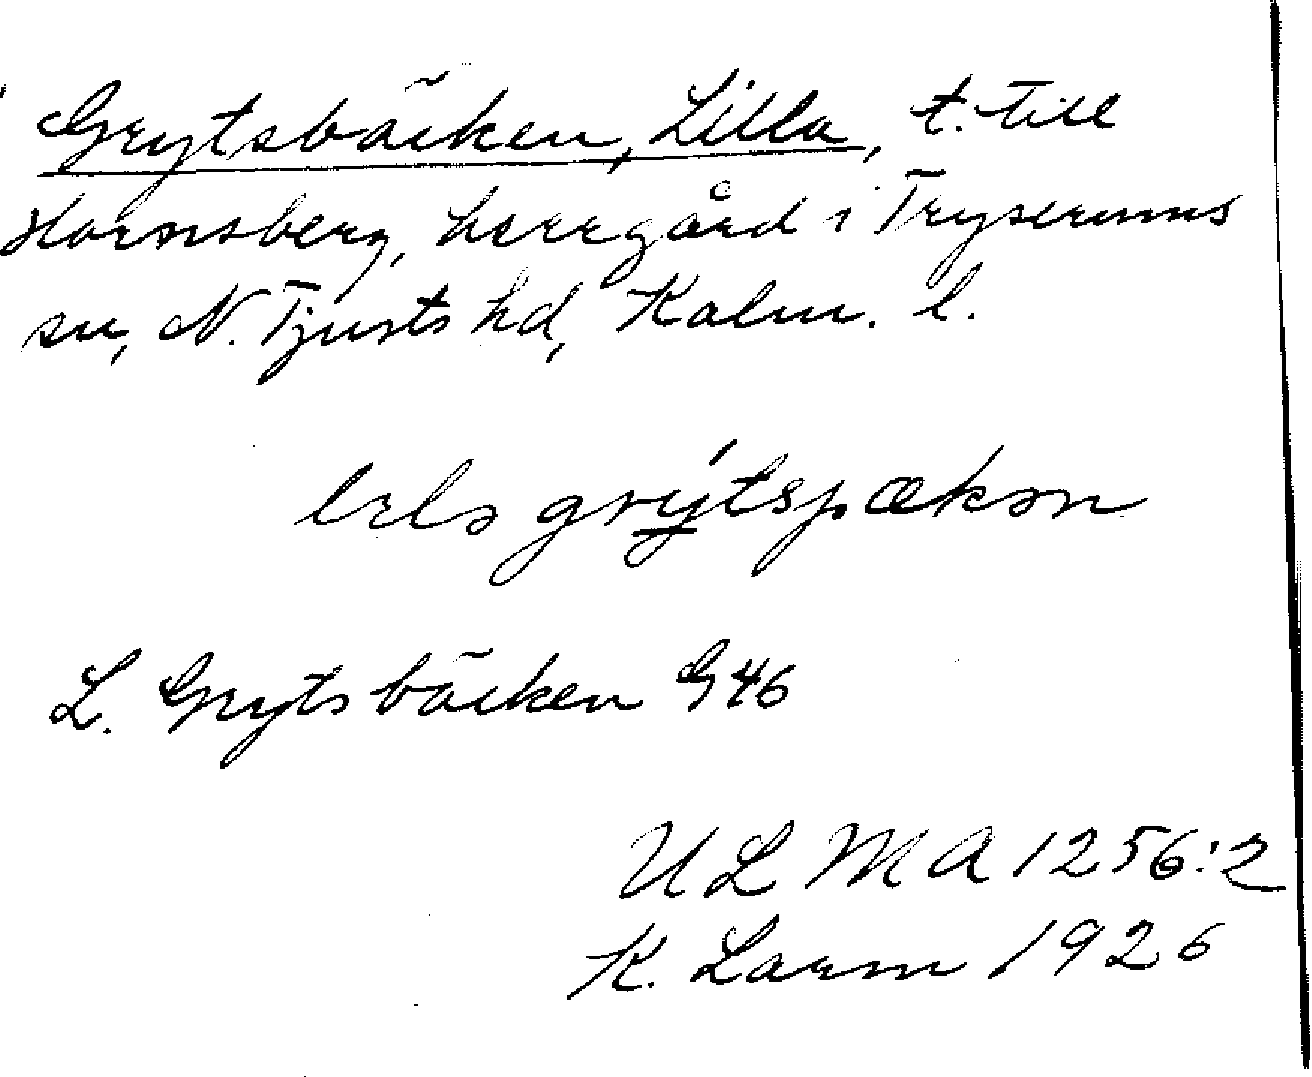 Grytsbäcken, Lilla, t. till
Hornsberg, herrgård i Tryserums
sn, N. Tjusts hd, Kalm. l.
grýtspækən
L. Grytsbäcken G 46
ULMA 1256:2
K. Larm 1926